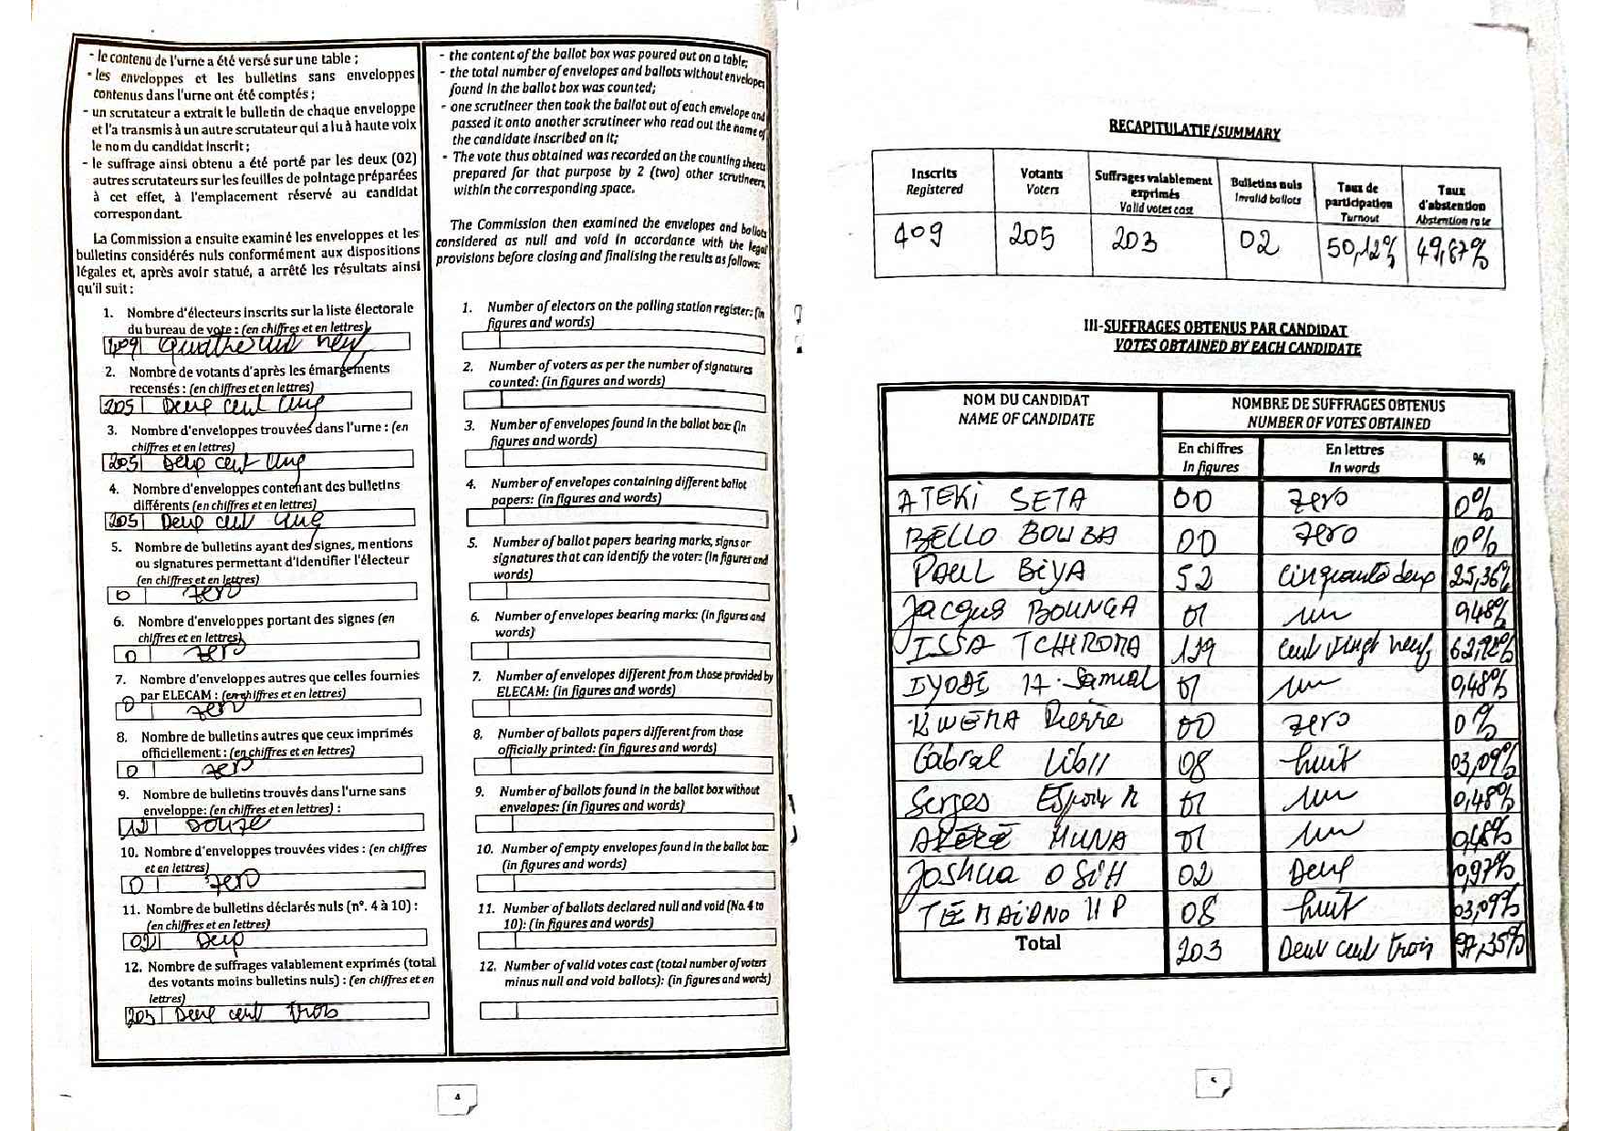 - le contenu de l'urne a été versé sur une table ;
- les enveloppes et les bulletins sans enveloppes
contenus dans l'urne ont été comptés ;
- un scrutateur a extrait le bulletin de chaque enveloppe
et l'a transmis à un autre scrutateur qui a lu à haute voix
le nom du candidat inscrit ;
- le suffrage ainsi obtenu a été porté par les deux (02)
autres scrutateurs sur les feuilles de pointage préparées
à cet effet, à l'emplacement réservé au candidat
correspondant.
La Commission a ensuite examiné les enveloppes et les
bulletins considérés nuls conformément aux dispositions
légales et, après avoir statué, a arrêté les résultats ainsi
qu'il suit :
1. Nombre d'électeurs inscrits sur la liste électorale
du bureau de vote : (en chiffres et en lettres)
409 Quatre cent neuf
2. Nombre de votants d'après les émargements
recensés : (en chiffres et en lettres)
205 Deux cent cinq
3. Nombre d'enveloppes trouvées dans l'urne : (en
chiffres et en lettres)
205 Deux cent cinq
4. Nombre d'enveloppes contenant des bulletins
différents (en chiffres et en lettres)
205 Deux cent cinq
5. Nombre de bulletins ayant des signes, mentions
ou signatures permettant d'identifier l'électeur
(en chiffres et en lettres)
0 zero
6. Nombre d'enveloppes portant des signes (en
chiffres et en lettres)
0 zero
7. Nombre d'enveloppes autres que celles fournies
par ELECAM : (en chiffres et en lettres)
0 zero
8. Nombre de bulletins autres que ceux imprimés
officiellement : (en chiffres et en lettres)
0 zero
9. Nombre de bulletins trouvés dans l'urne sans
enveloppe: (en chiffres et en lettres) :
12 douze
10. Nombre d'enveloppes trouvées vides : (en chiffres
et en lettres)
0 zero
11. Nombre de bulletins déclarés nuls (n°. 4 à 10) :
(en chiffres et en lettres)
02 Deux
12. Nombre de suffrages valablement exprimés (total
des votants moins bulletins nuls) : (en chiffres et en
lettres)
203 Deux cent trois
- the content of the ballot box was poured out on a table;
- the total number of envelopes and ballots without envelopes
found in the ballot box was counted;
- one scrutineer then took the ballot out of each envelope and
passed it onto another scrutineer who read out the name of
the candidate inscribed on it;
- The vote thus obtained was recorded on the counting sheets
prepared for that purpose by 2 (two) other scrutineers,
within the corresponding space.
The Commission then examined the envelopes and ballots
considered as null and void in accordance with the legal
provisions before closing and finalising the results as follows:
1. Number of electors on the polling station register: (in
figures and words)
2. Number of voters as per the number of signatures
counted: (in figures and words)
3. Number of envelopes found in the ballot box: (in
figures and words)
4. Number of envelopes containing different ballot
papers: (in figures and words)
5. Number of ballot papers bearing marks, signs or
signatures that can identify the voter: (in figures and
words)
6. Number of envelopes bearing marks: (in figures and
words)
7. Number of envelopes different from those provided by
ELECAM: (in figures and words)
8. Number of ballots papers different from those
officially printed: (in figures and words)
9. Number of ballots found in the ballot box without
envelopes: (in figures and words)
10. Number of empty envelopes found in the ballot box:
(in figures and words)
11. Number of ballots declared null and void (No. 4 to
10): (in figures and words)
12. Number of valid votes cast (total number of voters
minus null and void ballots): (in figures and words)
4
RECAPITULATIF/SUMMARY
Inscrits Registered | Votants Voters | Suffrages valablement exprimés Valid votes cast | Bulletins nuls Invalid ballots | Taux de participation Turnout | Taux d'abstention Abstention rate
409 205 203 02 50,12% 49,87%
III-SUFFRAGES OBTENUS PAR CANDIDAT
VOTES OBTAINED BY EACH CANDIDATE
NOM DU CANDIDAT
NAME OF CANDIDATE
NOMBRE DE SUFFRAGES OBTENUS
NUMBER OF VOTES OBTAINED
En chiffres En lettres %
In figures In words
ATEKI SETA 00 zero 0%
BELLO BOUBA 00 zero 0%
PAUL BIYA 52 cinquante deux 25,36%
Jacques BOUNGA 01 un 0,48%
ISSA TCHIROMA 129 cent vingt neuf 62,92%
IYODI H. Samuel 01 un 0,48%
KWEMA Pierre 00 zero 0%
Cabral Libii 08 huit 03,09%
Serges Espoir M 01 un 0,48%
AKERE MUNA 01 un 0,48%
Joshua OSIH 02 Deux 0,97%
08 huit 03,09%
Total 203 Deux cent trois 97,35%
5